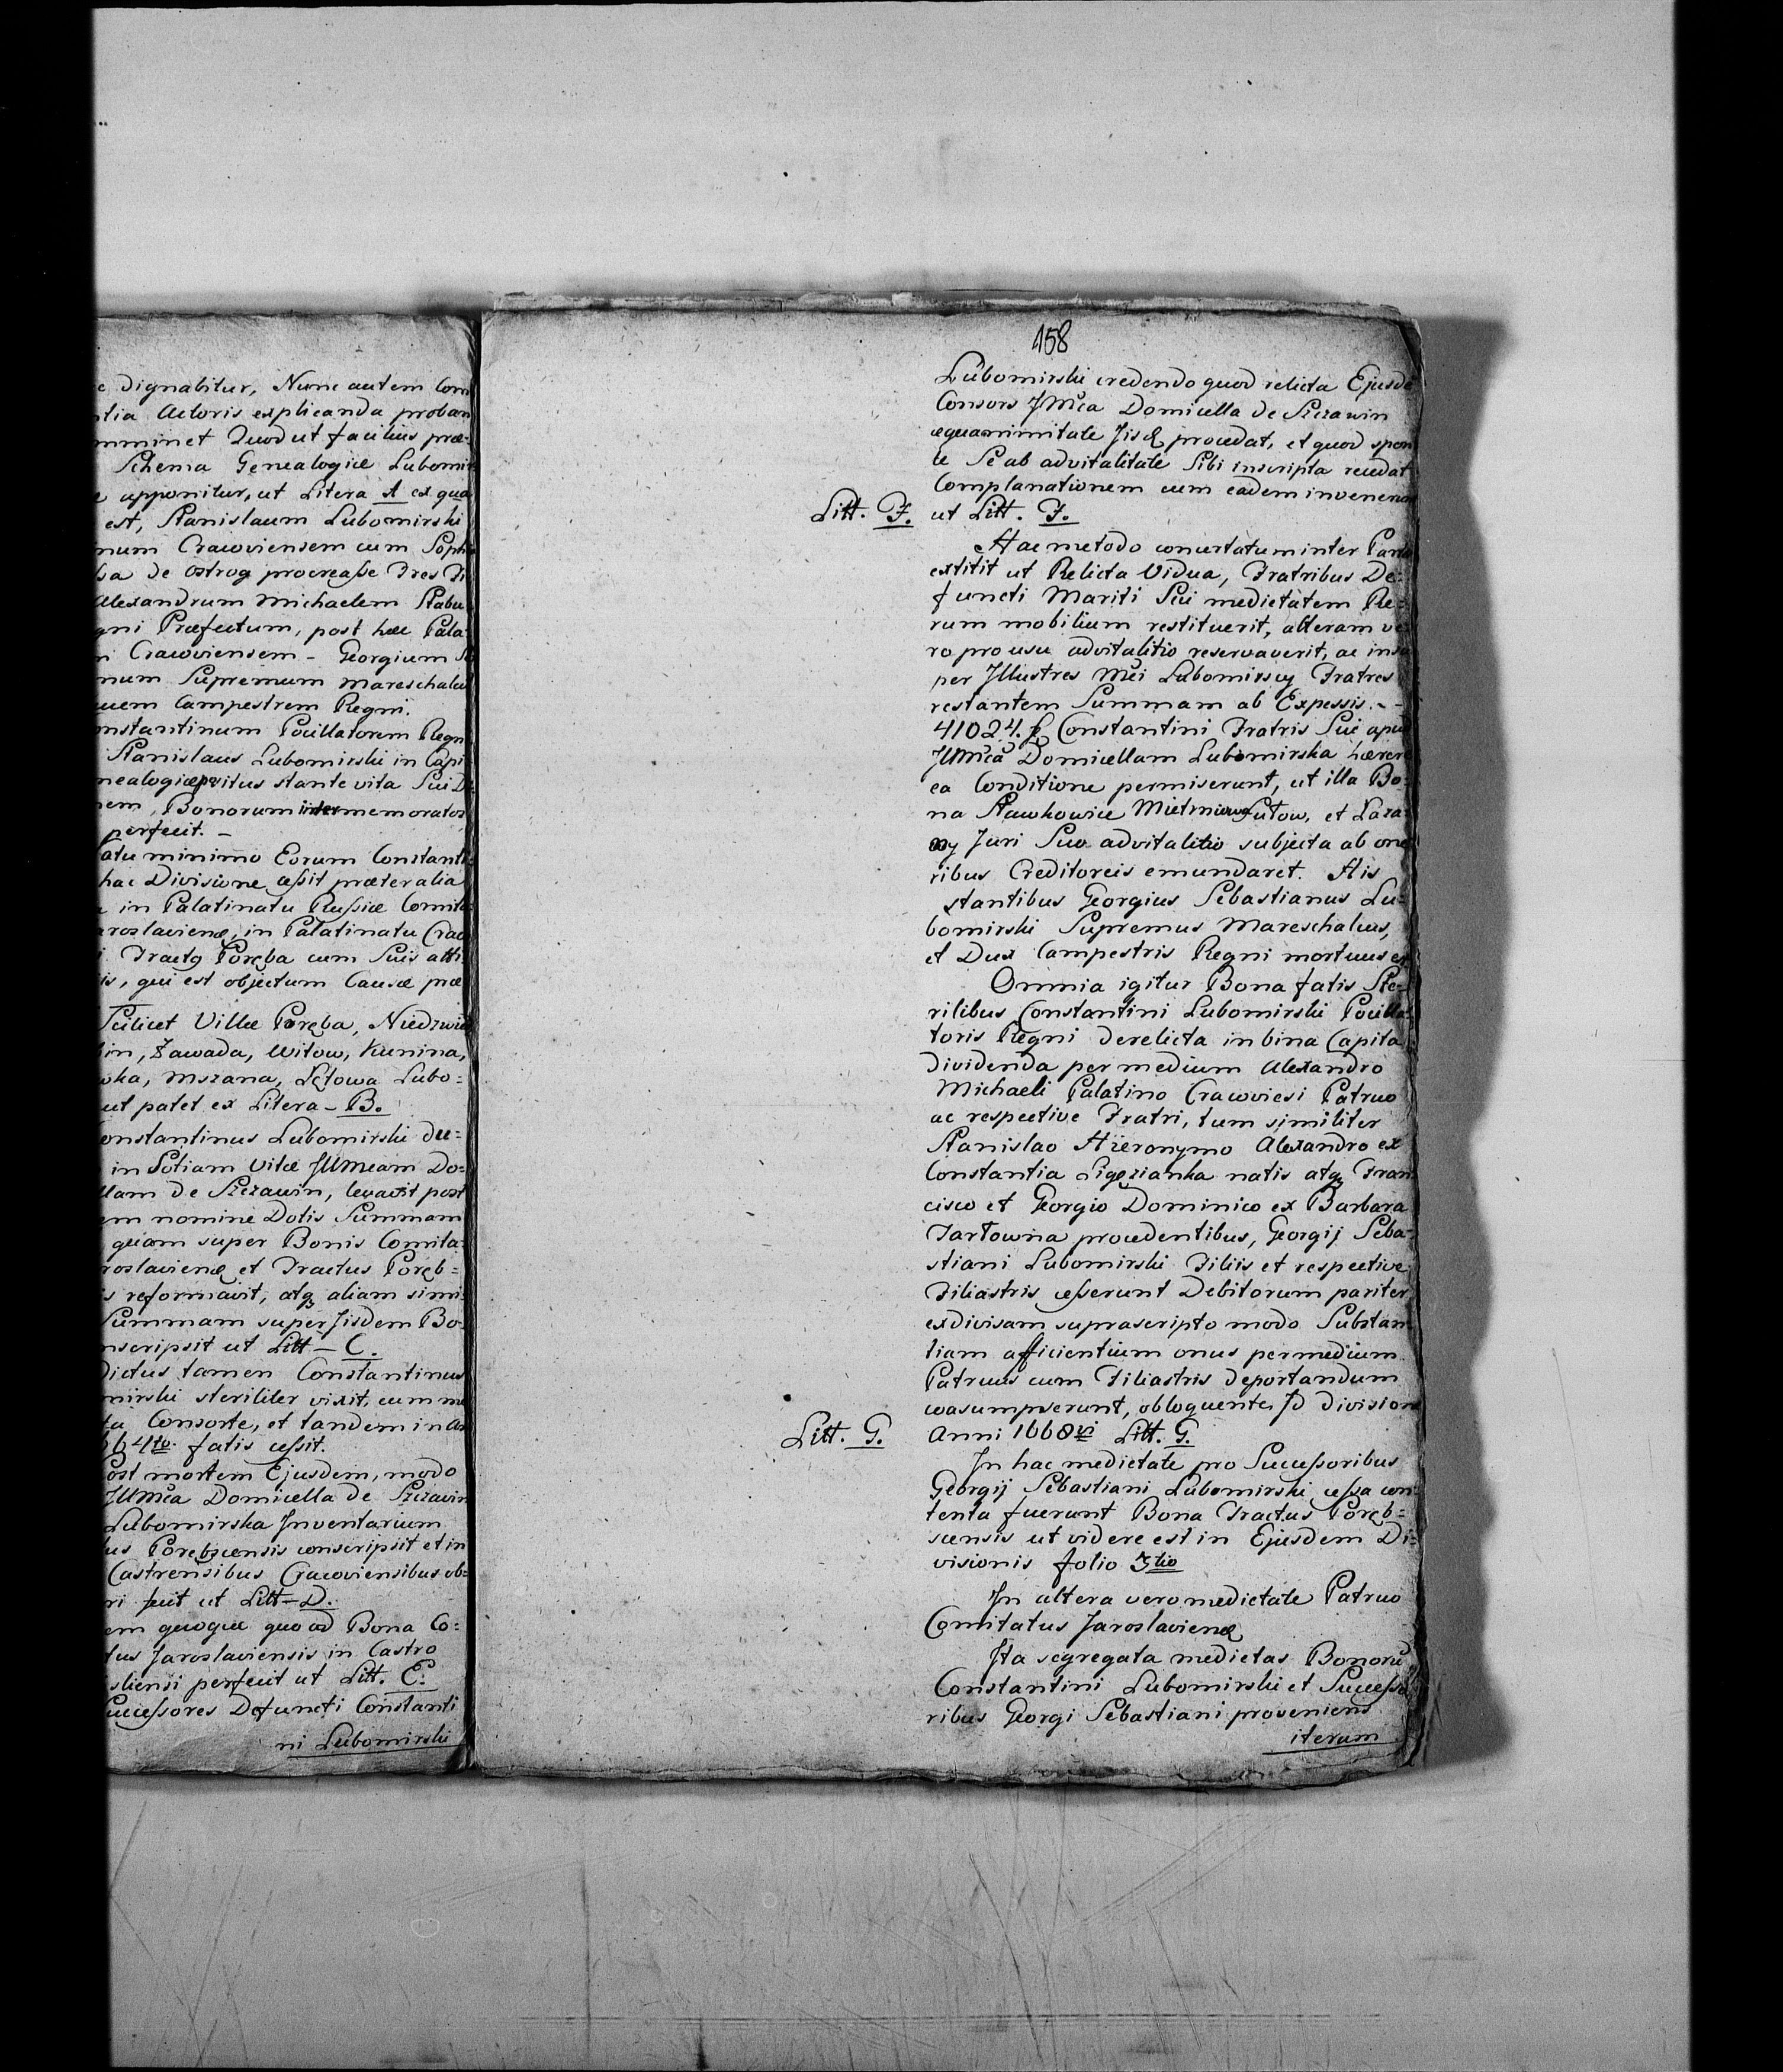 c dignabitur, Nunc autem Com
ntia Actoris explicanda proban
mminet Quod ut facilius præ-
Schema Genealogiæ Lubomir
e apponitur, ut Litera A ex qua
est, Stanislaum Lubomirski
num Cracoviensem cum Soph
sa de Ostrog procreasse Tres Fi
Alexandrum Michaelem Stabu
gni Præfectum, post hæc Pala-
ni Cracoviensem - Georgium Se
num Supremum Mareschalcu
ucem Campestrem Regni.
onstantinum Pocillatorem Regn
Stanislaus Lubomirski in Capi
nealogiæ positus stante vita Sui Di
nem, Bonorum inter memoratos
perfecit. -
atu minimo Eorum Constanti-
hac Divisione cessit præter alia
a in Palatinatu Russiæ Comita-
aroslavien, in Palatinatu Crac
i Tractq Poręba cum Suis atti-
is, qui est objectum Causæ præ
Scilicet Villæ Poręba, Niedzwie
bin, Zawada, Witow, Kunina,
wka, Mszana, Lętowa Lubo=
ut patet ex Litera - B.
onstantinus Lubomirski du=
in Sotiam Vitæ Jllmeam Do=
llam de Szczawin, levavit post
em nomine Dotis Summam
quam super Bonis Comita-
roslavien et Tractus Poręb=
s reformavit, atq aliam simi-
Summam super Jisdem Bo-
nscripsit ut Litt - C.
dictus tamen Constantinus
mirski steriliter vixit, cum me
ta Consorte, et tandem in An
664to. fatis cessit.
Post mortem Ejusdem, modo
Jllmca Domicella de Szczavin
Lubomirska Jnventarium
us Porębscensis conscripsit et in
Castrensibus Cracoviensibus ob=
ri fecit ut Litt - D.
em quoque quoad Bona Co=
tus Jaroslaviensis in Castro
sliensi perfecit ut Litt. E.
uccessores Defuncti Constanti
ni Lubomirski
158
Lubomirski credendo quod relicta Ejusde
Consors Jllmca Domicella de Szczawin
æquanimitate Jisd procedat, et quod spon
te Se ab advitalitate Sibi inscripta recedat
Complanationem cum eadem invenerun
Litt. F. ut Litt. F.
Hac metodo concertatum inter Parte
extitit ut Relicta Vidua, Fratribus De-
functi Mariti Sui medietatem Re=
rum mobilium restituerit, alteram ve
ro pro usu advitalitio reservaverit, ac insu
per Jllustres Mci Lubomirscy Fratres
restantem Summam ab Expessis. - -
41024. f Constantini Fratris Sui apud
Jllmca Domicellam Lubomirska hærere
ea Conditione permiserunt, ut illa Bo-
na Sławkowice Mietniow Sułow, et Łaza
ny Juri Suo advitalitio subjecta ab one
ribus Creditoreis emundaret. His
stantibus Georgius Sebastianus Lu-
bomirski Supremus Mareschalcus,
et Dux Campestris Regni mortuus est
Omnia igitur Bona fatis Ste-
rilibus Constantini Lubomirski Pocilla-
toris Regni derelicta in bina Capita
dividenda per medium Alexandro
Michaeli Palatino Cracoviesi Patruo
ac respective Fratri, tum similiter
Stanislao Hieronymo Alexandro ex
Constantia Ligęzianka natis atq Fran
cisco et Georgio Dominico ex Barbara
Tartowna procedentibus, Georgij Seba-
stiani Lubomirski Filiis et respective
Filiastris cesserunt Debitorum pariter
exdivisam suprascripto modo Substan
tiam afficientium onus per medium
Patruus cum Filiastris deportandum
coasumpserunt, obloquente Jd Divisione
Litt. G. Anni 1668vi Litt. G.
Jn hac medietate pro Successoribus
Georgij Sebastiani Lubomirski cessa con-
tenta fuerunt Bona Tractus Poręb=
scensis ut videre est in Ejusdem Di-
visionis folio 3tio
Jn altera vero medietate Patruo
Comitatus Jaroslavien
Jta segregata medietas Bonorũ
Constantini Lubomirski et Successo
ribus Georgi Sebastiani proveniens
iterum